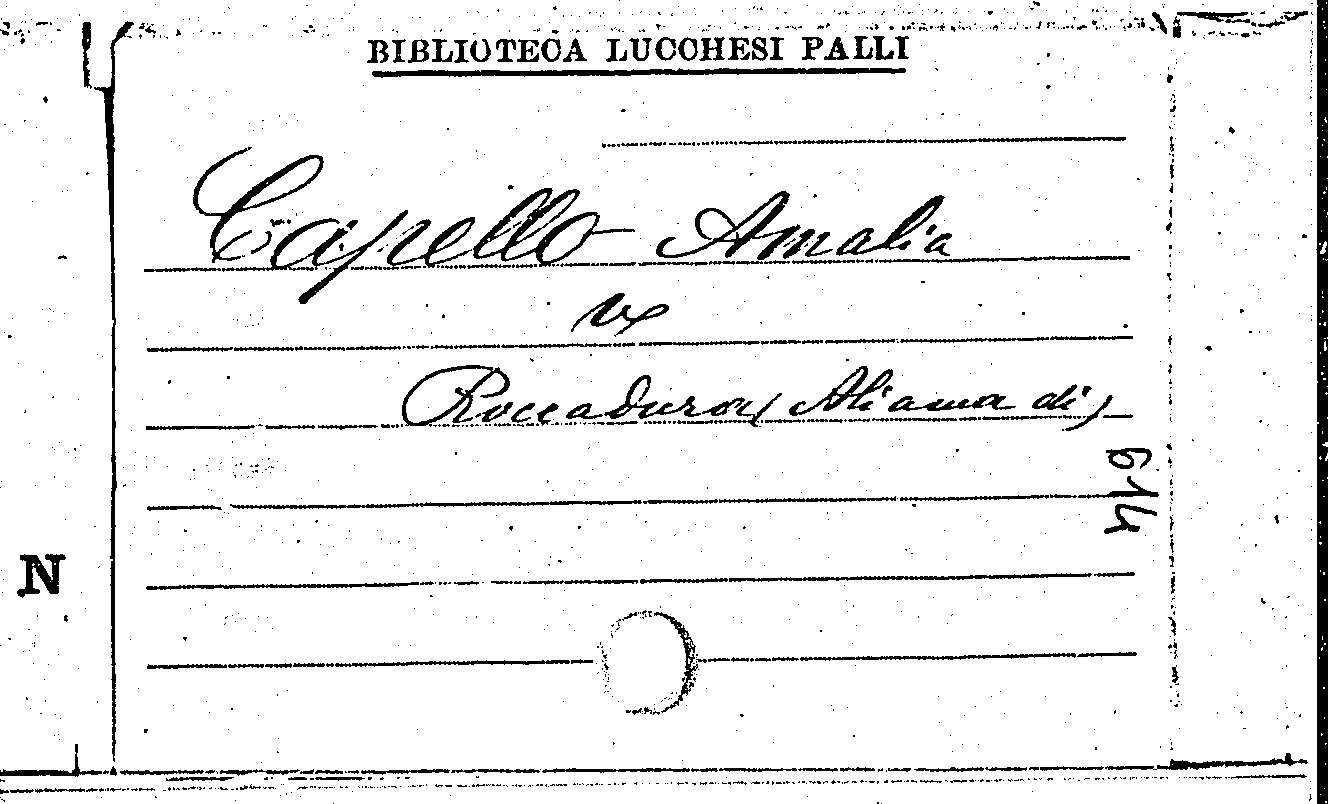 BIBLIOTECA LUCCHESI PALLI
Capello Amalia
v
Roccadura, Aliama di,
614
N